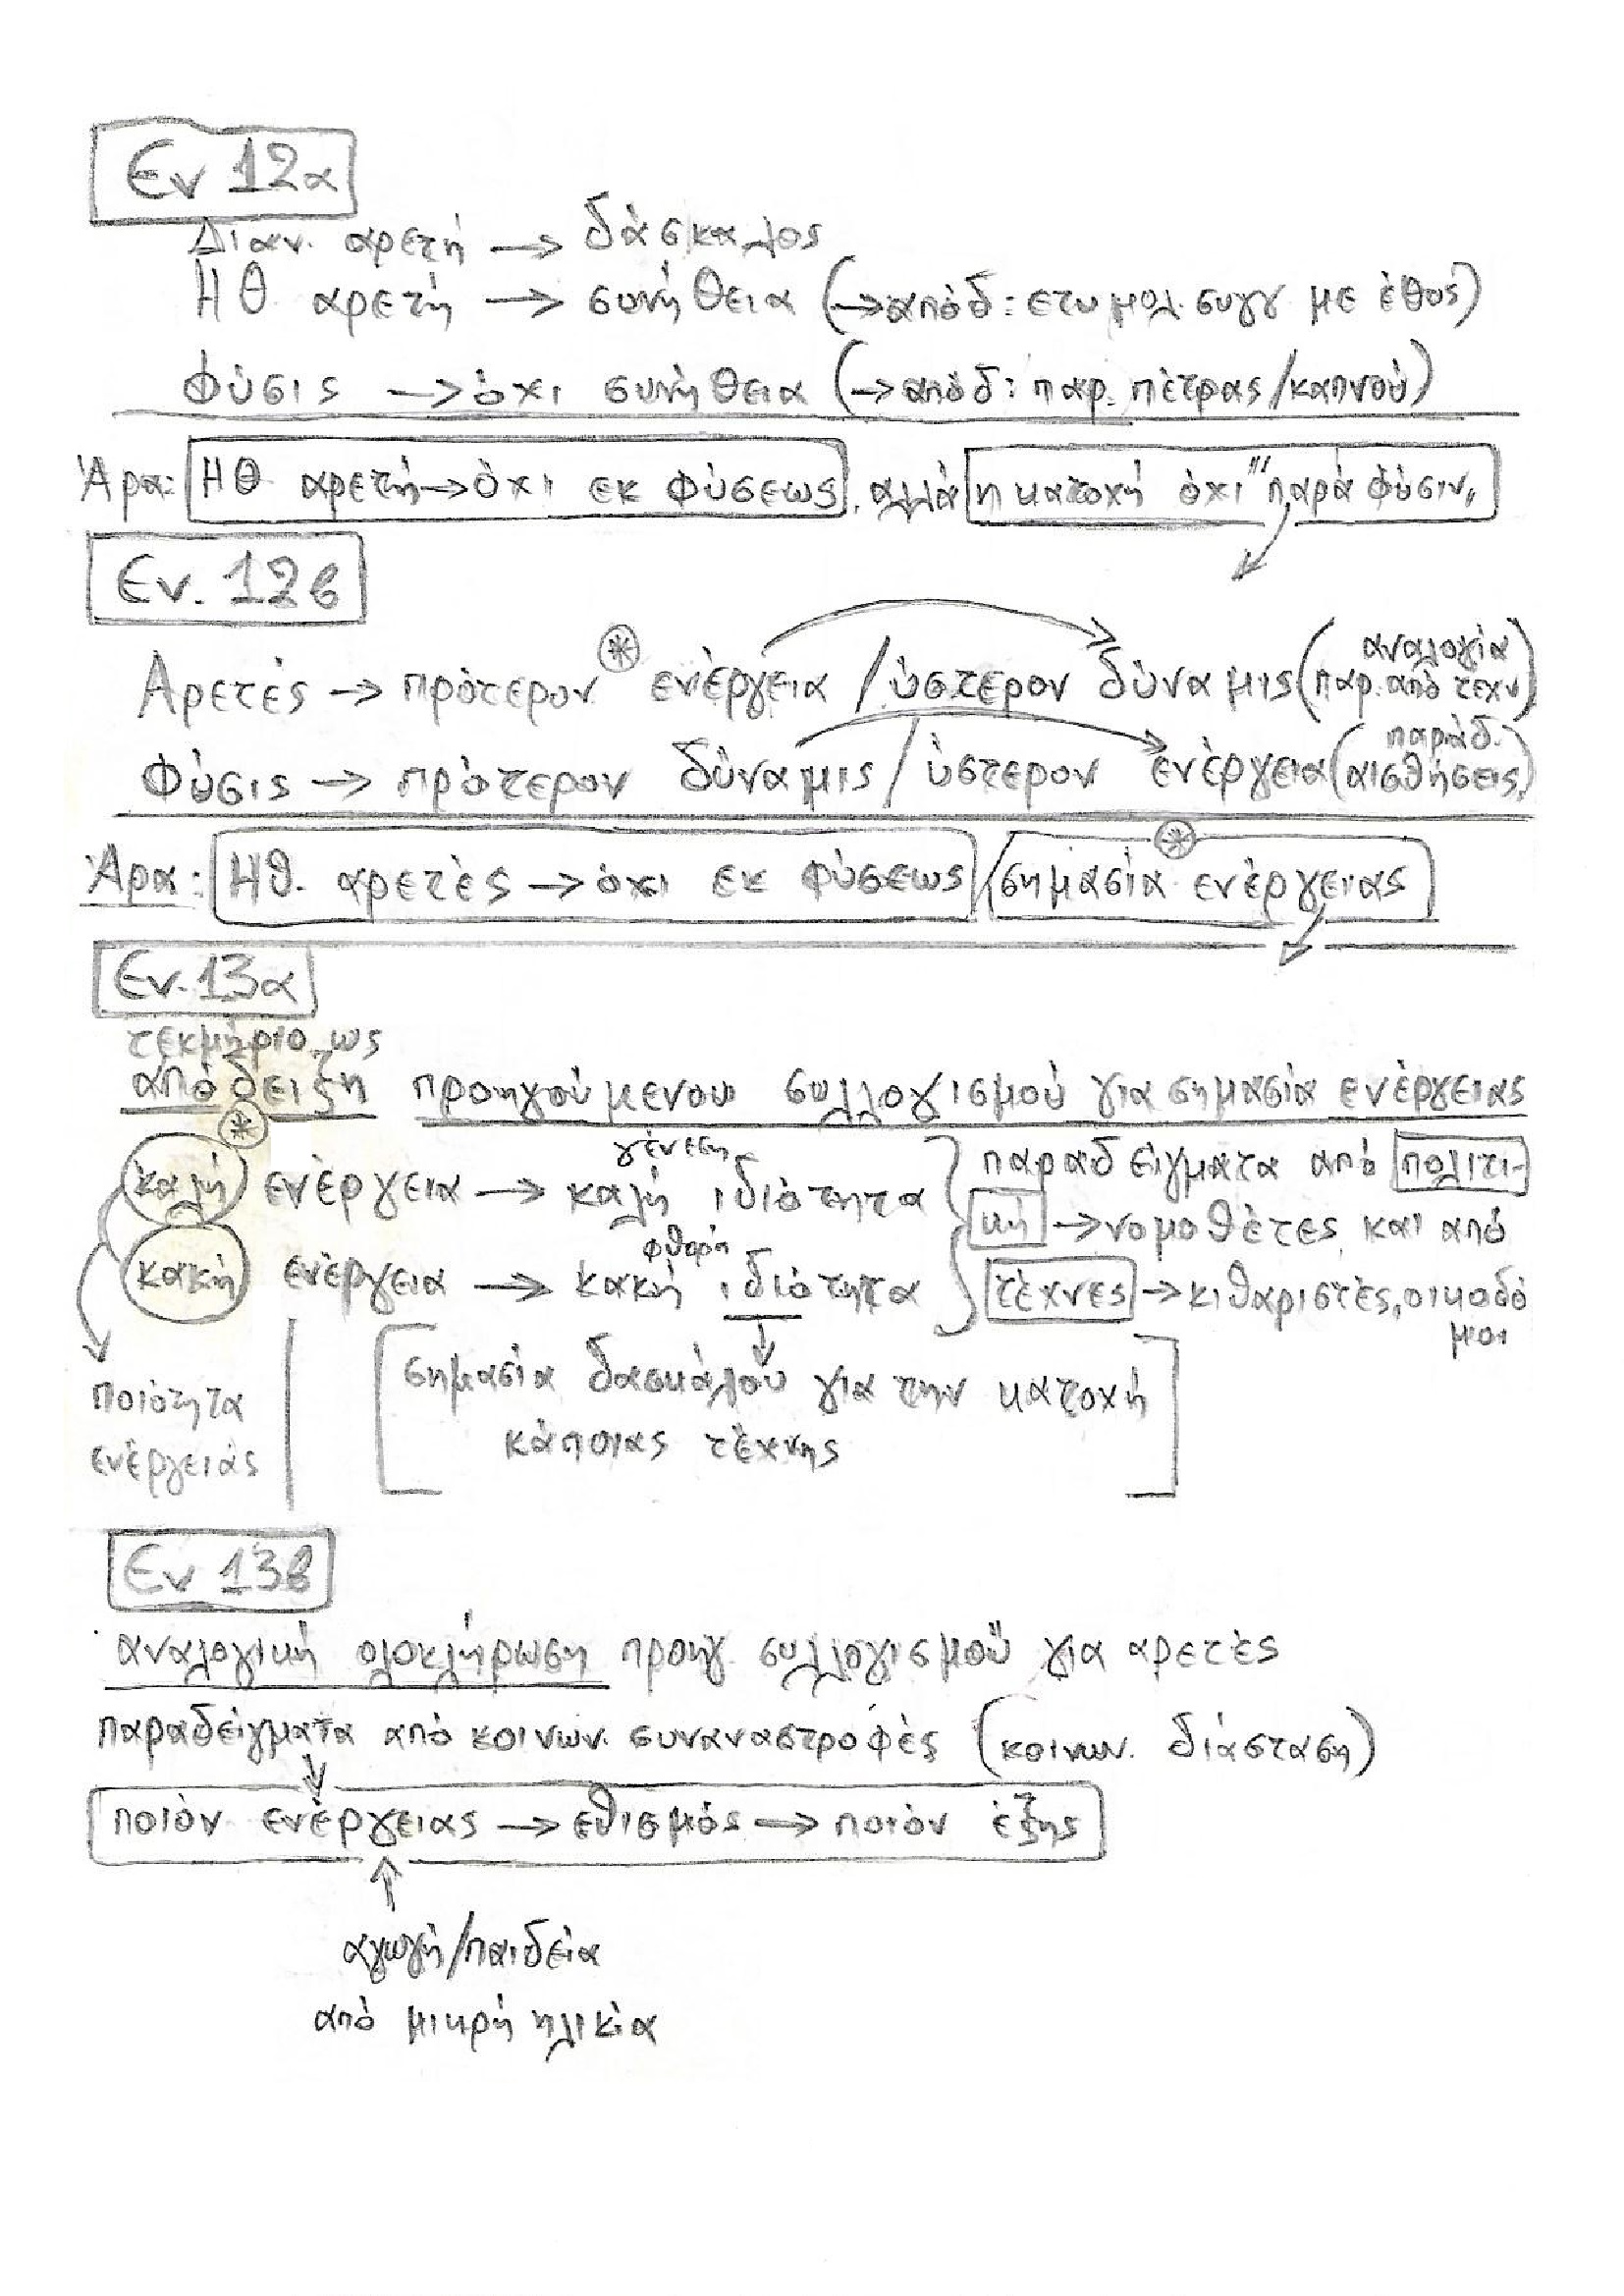 Εν 12α
Διαν. αρετή → δάσκαλος
ΗΘ αρετή → συνήθεια (→ απόδ: ετυμολ. συγγ με έθος)
Φύσις → όχι συνήθεια (→ απόδ: παρ. πέτρας/καπνού)
Άρα: ΗΘ αρετή → όχι εκ φύσεως, αλλά η κατοχή όχι "παρά φύσιν"
Εν. 12β
Αρετές → πρότερον * ενέργεια / ύστερον δύναμις (αναλογία παρ. από τεχν)
Φύσις → πρότερον δύναμις / ύστερον ενέργεια (παράδ. αισθήσεις)
Άρα: Ηθ. αρετές → όχι εκ φύσεως / σημασία * ενέργειας
Εν. 13α
τεκμήριο ως
απόδειξη προηγούμενου συλλογισμού για σημασία ενέργειας
*
γένεση
καλή ενέργεια → καλή ιδιότητα
φθορά
κακή ενέργεια → κακή ιδιότητα
παραδείγματα από πολιτι-
κή → νομοθέτες, και από
τέχνες → κιθαριστές, οικοδό
μοι
ποιότητα
ενέργειας
[σημασία δασκάλου για την κατοχή
κάποιας τέχνης]
Εν 13β
αναλογική ολοκλήρωση προηγ. συλλογισμού για αρετές
παραδείγματα από κοινων. συναναστροφές (κοινων. διάσταση)
ποιόν ενέργειας → εθισμός → ποιόν έξης
αγωγή/παιδεία
από μικρή ηλικία